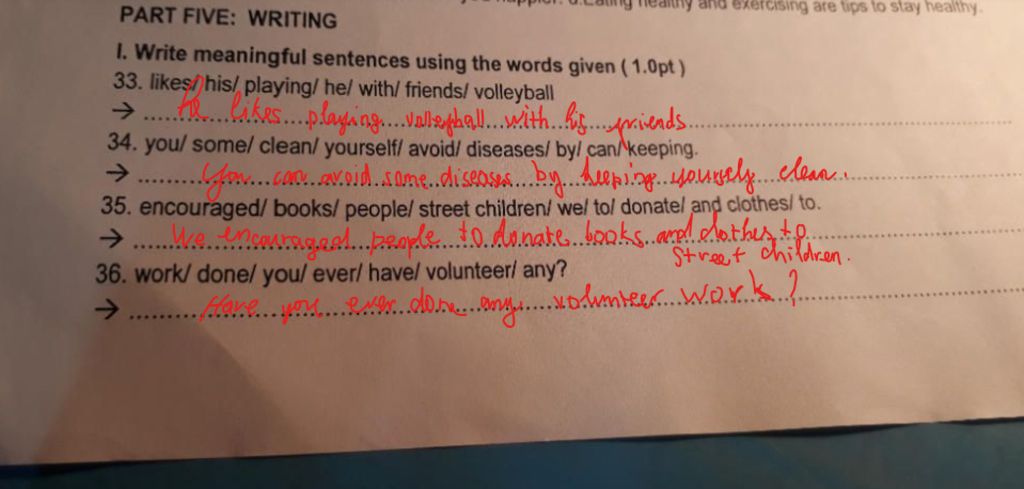 Eating healthy and exercising are tips to stay healthy.
PART FIVE: WRITING
I. Write meaningful sentences using the words given ( 1.0pt )
33. likes/ his/ playing/ he/ with/ friends/ volleyball
→ He likes playing volleyball with his friends
34. you/ some/ clean/ yourself/ avoid/ diseases/ by/ can/ keeping.
→ You can avoid some diseases by keeping yourself clean.
35. encouraged/ books/ people/ street children/ we/ to/ donate/ and clothes/ to.
→ We encouraged people to donate books and clothes to
street children.
36. work/ done/ you/ ever/ have/ volunteer/ any?
→ Have you ever done any volunteer work?